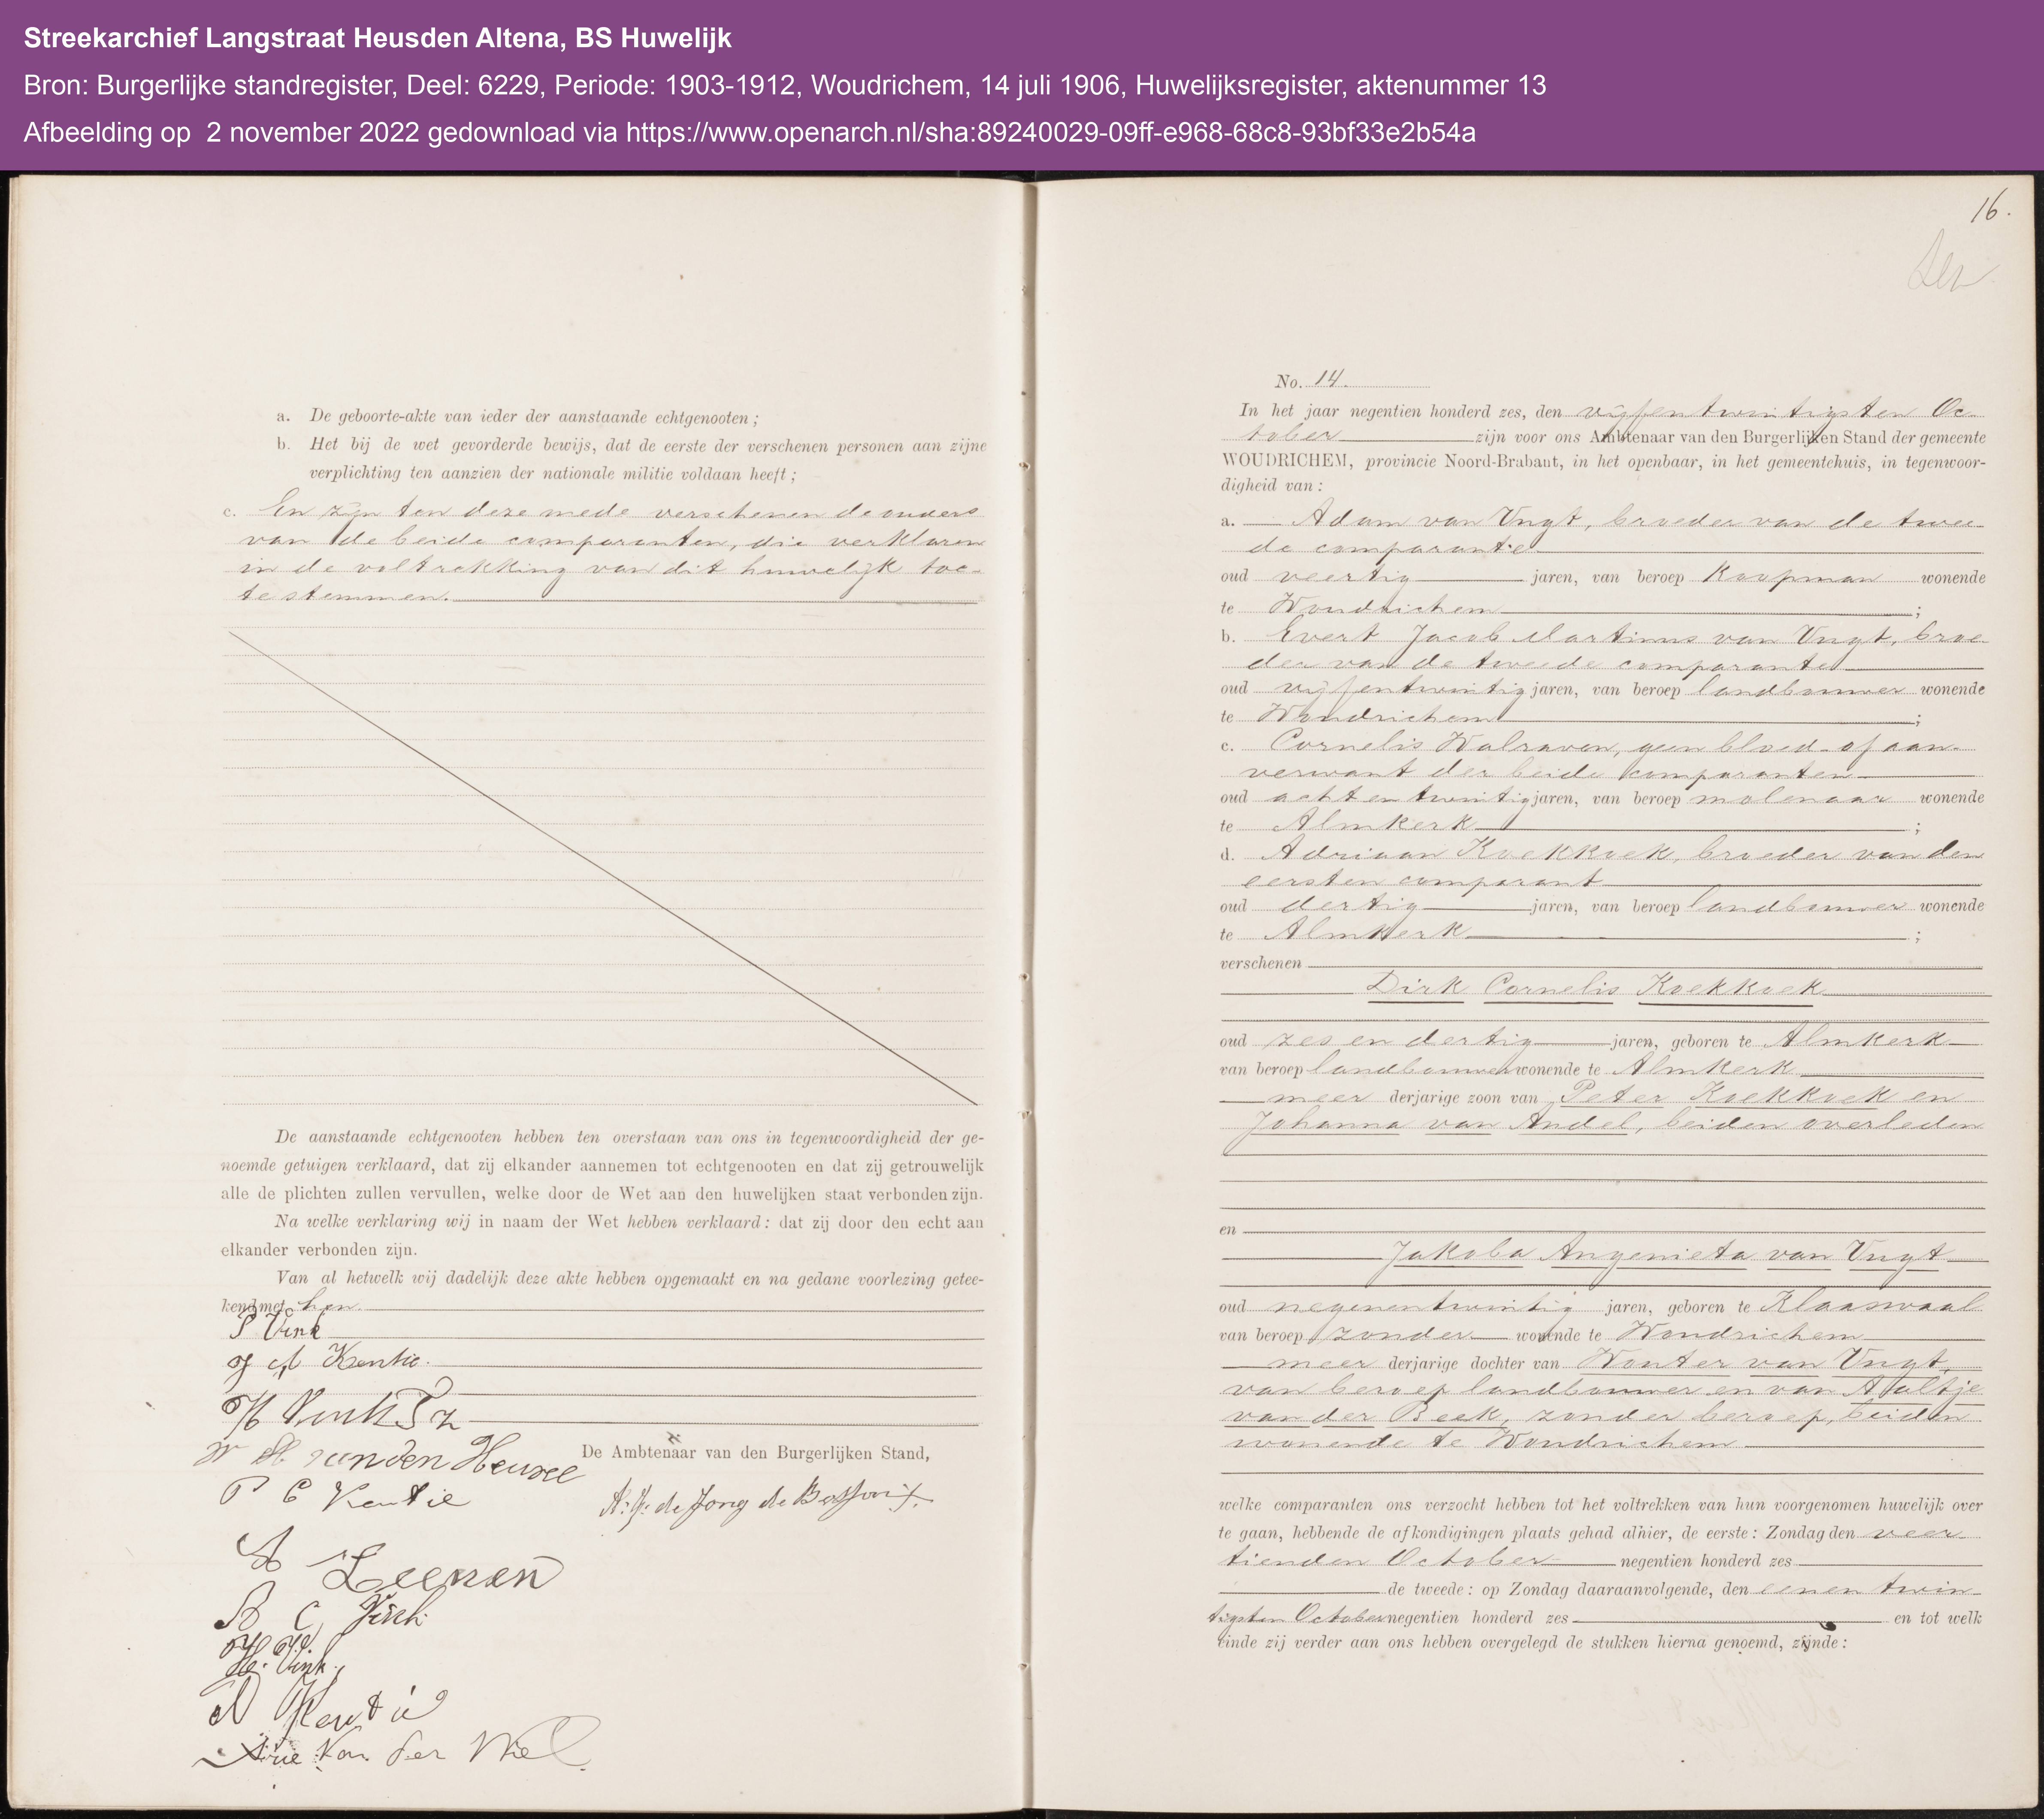 Streekarchief Langstraat Heusden Altena, BS Huwelijk
Bron: Burgerlijke standregister, Deel: 6229, Periode: 1903-1912, Woudrichem, 14 juli 1906, Huwelijksregister, aktenummer 13
Afbeelding op 2 november 2022 gedownload via https://www.openarch.nl/sha:89240029-09ff-e968-68c8-93bf33e2b54a
a. De geboorte-akte van ieder der aanstaande echtgenooten;
b. Het bij de wet gevorderde bewijs, dat de eerste der verschenen personen aan zijne
verplichting ten aanzien der nationale militie voldaan heeft;
c. En zijn ten deze mede verschenen de ouders
van de beide comparanten, die verklaren
in de voltrekking van dit huwelijk toe-
te stemmen.
De aanstaande echtgenooten hebben ten overstaan van ons in tegenwoordigheid der ge-
noemde getuigen verklaard, dat zij elkander aannemen tot echtgenooten en dat zij getrouwelijk
alle de plichten zullen vervullen, welke door de Wet aan den huwelijken staat verbonden zijn.
Na welke verklaring wij in naam der Wet hebben verklaard: dat zij door den echt aan
elkander verbonden zijn.
Van al hetwelk wij dadelijk deze akte hebben opgemaakt en na gedane voorlezing getee-
kend met hen.
P Vink
J A Kentie.
H Vink Pz
W H van den Heuvel
De Ambtenaar van den Burgerlijken Stand,
P C Kentie
de Jong de
A Leenen
B C Vink
H. Vink.
A Kentie
Arie van der Wiel
16.
No. 14.
In het jaar negentien honderd zes, den vijfentwintigsten Oc-
tober zijn voor ons Ambtenaar van den Burgerlijken Stand der gemeente
WOUDRICHEM, provincie Noord-Brabant, in het openbaar, in het gemeentehuis, in tegenwoor-
digheid van:
a. Adam van Vugt, broeder van de twee-
de comparante
oud veertig jaren, van beroep Koopman wonende
te Woudrichem;
b. Evert Jacob Martinus van Vugt, broe-
der van de tweede comparante
oud vijfentwintig jaren, van beroep landbouwer wonende
te Woudrichem;
c. Cornelis Walraven, geen bloed- of aan-
verwant der beide comparanten
oud achtentwintig jaren, van beroep molenaar wonende
te Almkerk;
d. Adriaan Koekkoek, broeder van den
eersten comparant
oud dertig jaren, van beroep landbouwer wonende
te Almkerk;
verschenen
Dirk Cornelis Koekkoek
oud zes en dertig jaren, geboren te Almkerk
van beroep landbouwer wonende te Almkerk
meer derjarige zoon van Peter Koekkoek en
Johanna van Andel, beiden overleden
en
Jakoba Angenieta van Vugt
oud negenentwintig jaren, geboren te Klaaswaal
van beroep zonder wonende te Woudrichem
meer derjarige dochter van Wouter van Vugt,
van beroep landbouwer en van Aaltje
van der Beek, zonder beroep, beiden
wonende te Woudrichem
welke comparanten ons verzocht hebben tot het voltrekken van hun voorgenomen huwelijk over
te gaan, hebbende de afkondigingen plaats gehad alhier, de eerste: Zondag den veer
tienden October negentien honderd zes
de tweede: op Zondag daaraanvolgende, den eenen twin
tigsten October negentien honderd zes en tot welk
einde zij verder aan ons hebben overgelegd de stukken hierna genoemd, zijnde: